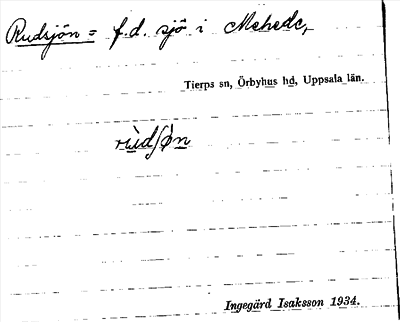 Rudsjön = f.d. sjö i Mehede,
Tierps sn, Örbyhus hd, Uppsala län.
rùdʃø̀n
Ingegärd Isaksson 1934.